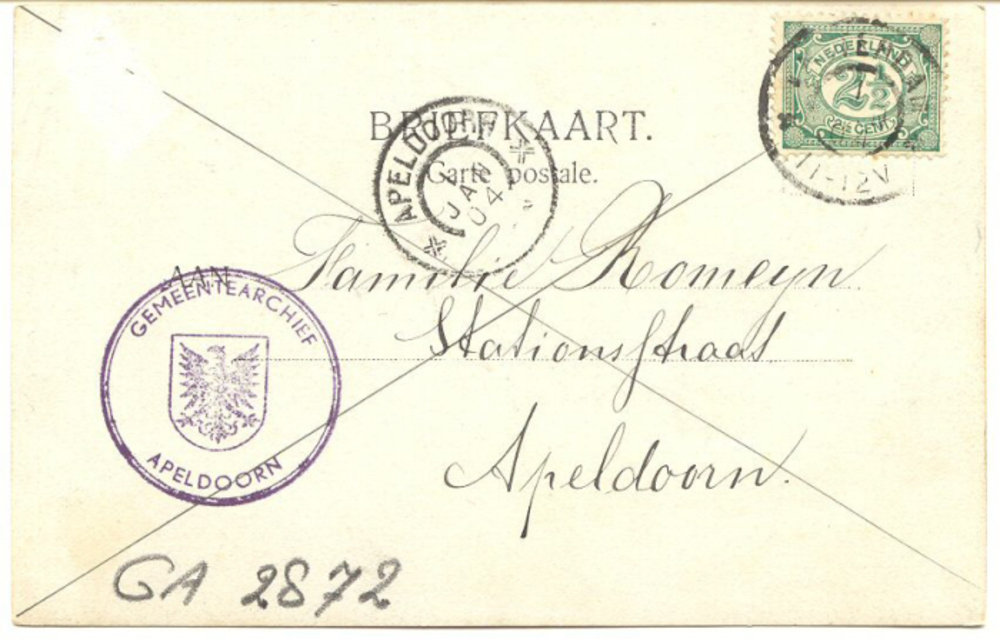 NEDERLAND
2½
2½ CENT
11-12V
BRIEFKAART.
Carte postale.
APELDOORN
JAN
04
AAN
Familie Romeyn
Stationsstraat
Apeldoorn.
GEMEENTEARCHIEF
APELDOORN
GA 2872